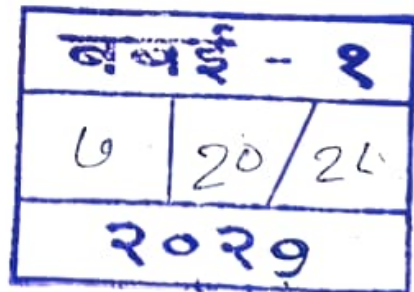 बबई - १
७ 20/24
२०२१